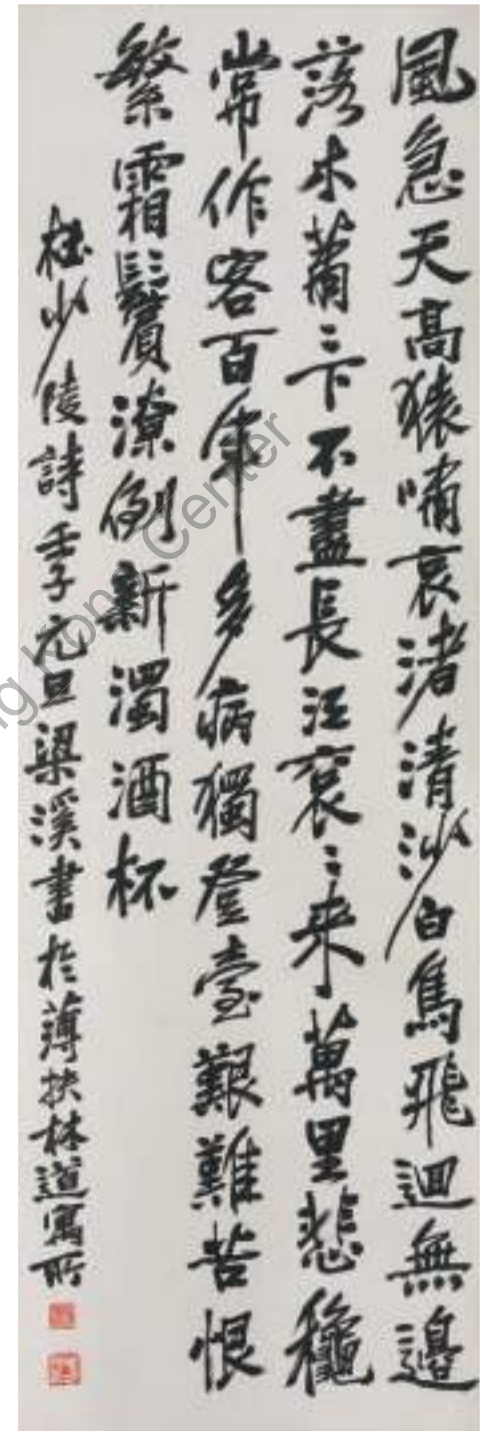 風急天高猿嘯哀渚清沙白鳥飛迴無邊
落木蕭〻下不盡長江衮〻来萬里悲龝
常作客百年多病獨登臺艱難苦恨
繁霜鬢潦倒新濁酒杯
杜少陵詩壬子元旦梁溪書於薄扶林道寓所